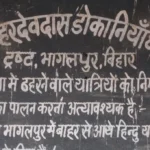 हरदेवदास डोकानियाँ
ट्रष्ट, भागलपुर, बिहार
में ठहरने वाले यात्रियों को
का पालन करना अत्यावश्यक है
भागलपुर में बाहर से आये हिन्दु